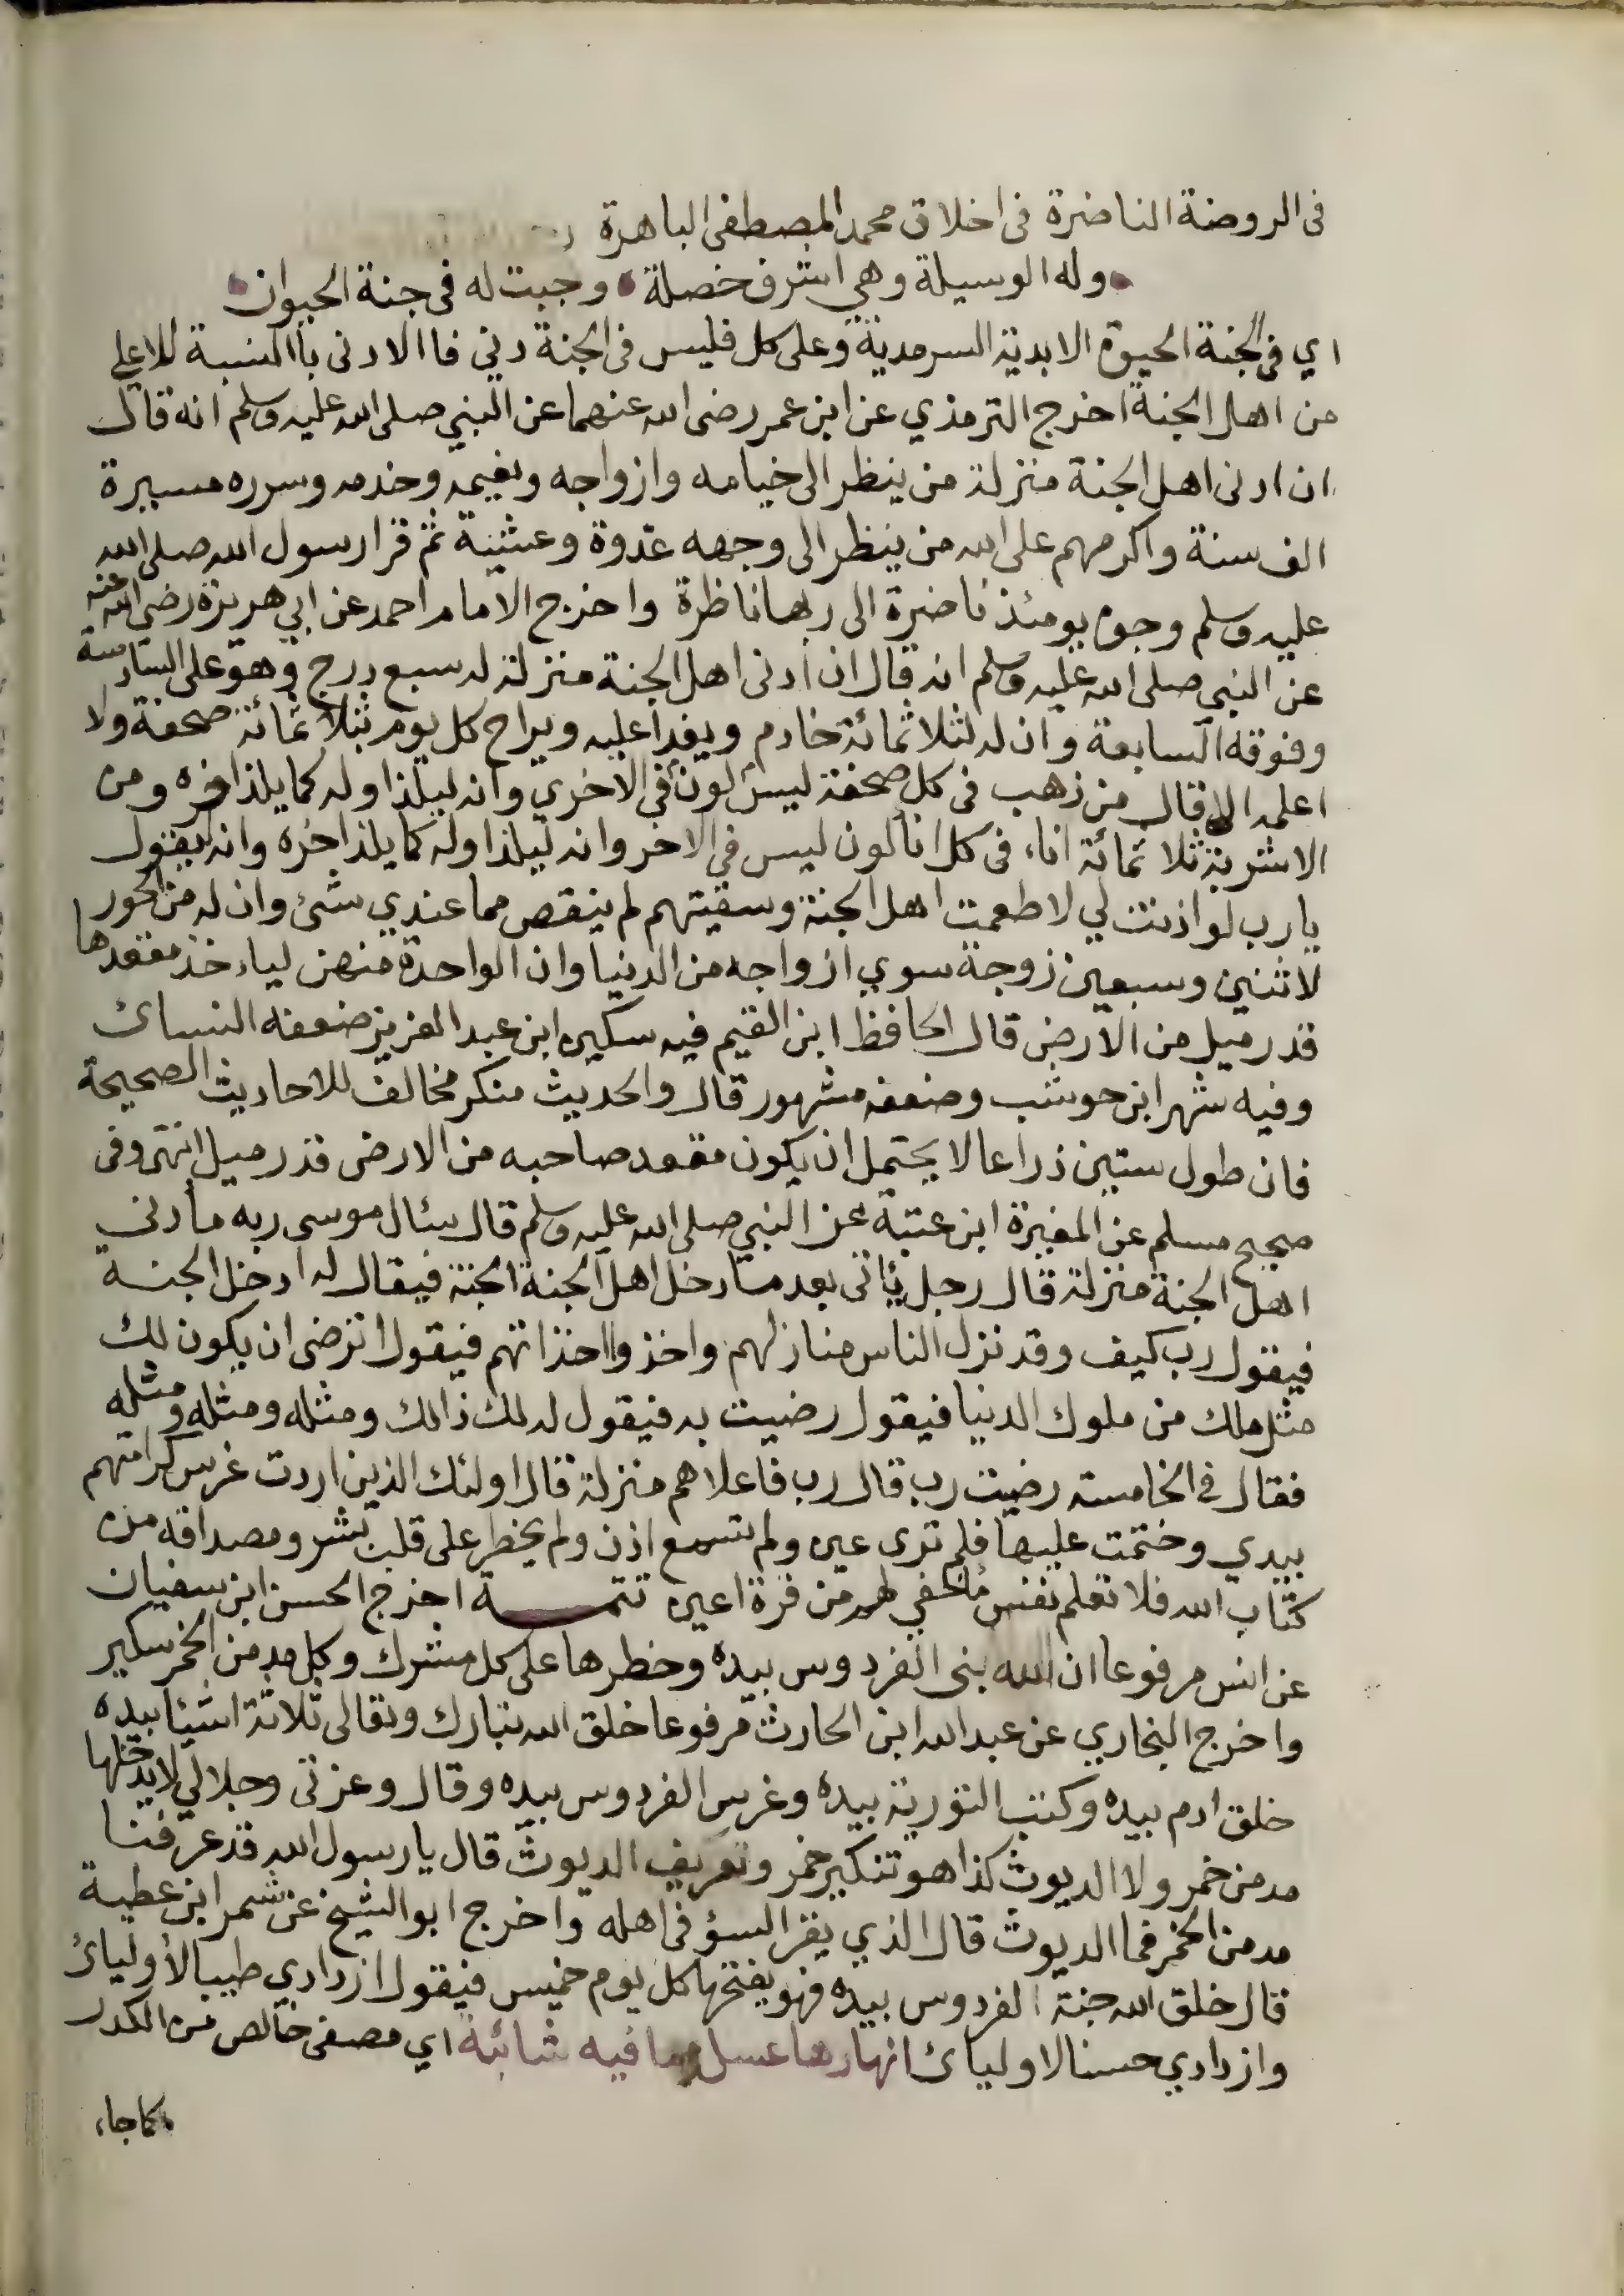 فى الروضة الناضرة فى اخلاق محمد المصطفى الباهرة
وله الوسيلة وهي اشرف خصلة • وجبت له فى جنة الحيوان
اي فى الجنة الحيوة الابدية السرمدية وعلى كل فليس فى الجنة دني فا الادنى باالنسبة للاعلي
من اهل الجنة اخرج الترمذي عن ابن عمر رضى الله عنهما عن النبي صلى الله عليه وسلم انه قال
ان ادنى اهل الجنة منزلة من ينظر الى خيامه وازواجه ونعيمه وخدمه وسرره مسيرة
الف سنة واكرمهم على الله من ينظر الى وجهه غدوة وعشية ثم قرا رسول الله صلى الله
عليه وسلم وجوه يومئذ ناضرة الى ربها ناظرة واخرج الامام احمد عن ابي هريرة رضي الله عنه
عن النبي صلى الله عليه وسلم انه قال ان ادنى اهل الجنة منزلة له سبع درج وهو على السادسة
وفوقه السابعة وان له لثلاثمائة خادم ويغدا عليه ويراح كل يوم بثلاثمائة صحفة ولا
اعلمه الا قال من ذهب فى كل صحفة ليس لون فى الاخري وانه ليلذ اوله كما يلذ اخره ومن
الاشربة ثلاثمائة اناء فى كل انا لون ليس في الاخر وانه ليلذ اوله كما يلذ اخره وانه ليقول
يارب لو اذنت لي لاطعمت اهل الجنة وسقيتهم لم ينقص مما عندي شئ وان له من الحور
لاثنين وسبعين زوجة سوي ازواجه من الدنيا وان الواحدة منهن لياءخذ مقعدها
قدر ميل من الارض قال الحافظ ابن القيم فيه سكين ابن عبد العزيز ضعفه النسائ
وفيه شهر ابن حوشب وضعفه مشهور قال والحديث منكر مخالف للاحاديث الصحيحة
فان طول ستين ذراعا لا يحتمل ان يكون مقعد صاحبه من الارض قدر ميل انتهى وفى
صحيح مسلم عن المغيرة ابن عتبة عن النبي صلى الله عليه وسلم قال سئال موسى ربه ما ادنى
اهل الجنة منزلة قال رجل يئاتى بعد ما دخل اهل الجنة الجنة فيقال له ادخل الجنة
فيقول رب كيف وقد نزل الناس منازلهم واخذوا اخذاتهم فيقول اترضى ان يكون لك
مثل ملك من ملوك الدنيا فيقول رضيت به فيقول له لك ذالك ومثله ومثله ومثله
فقال فى الخامسة رضيت رب قال رب فاعلاهم منزلة قال اولئك الذين اردت غرس كرامتهم
بيدي وختمت عليها فلم ترى عين ولم تسمع اذن ولم يخطر على قلب بشر ومصداقه من
كتاب الله فلا تعلم نفس ما اخفي لهم من قرة اعين تتمـــة اخرج الحسن ابن سفيان
عن انس مرفوعا ان الله بنى الفردوس بيده وحظرها على كل مشرك وكل مدمن الخمر سكير
واخرج البخاري عن عبد الله ابن الحارث مرفوعا خلق الله تبارك وتعالى ثلاثة اشيئا بيده
خلق ادم بيده وكتب التورية بيده وغرس الفردوس بيده وقال وعزتى وجلالي لا يدخلها
مدمن خمر ولا الديوث كذا هو تنكير خمر وتعريف الديوث قال يارسول الله قد عرفنا
مدمن الخمر فما الديوث قال الذي يقر السؤ فى اهله واخرج ابو الشيخ عن شمر ابن عطية
قال خلق الله جنة الفردوس بيده فهو يفتحها كل يوم خميس فيقول ازدادي طيبا لأوليائ
وازدادي حسنا لاوليائ انهارها عسل وما فيه شائبة اي مصفى خالص من الكدر
كما جاء